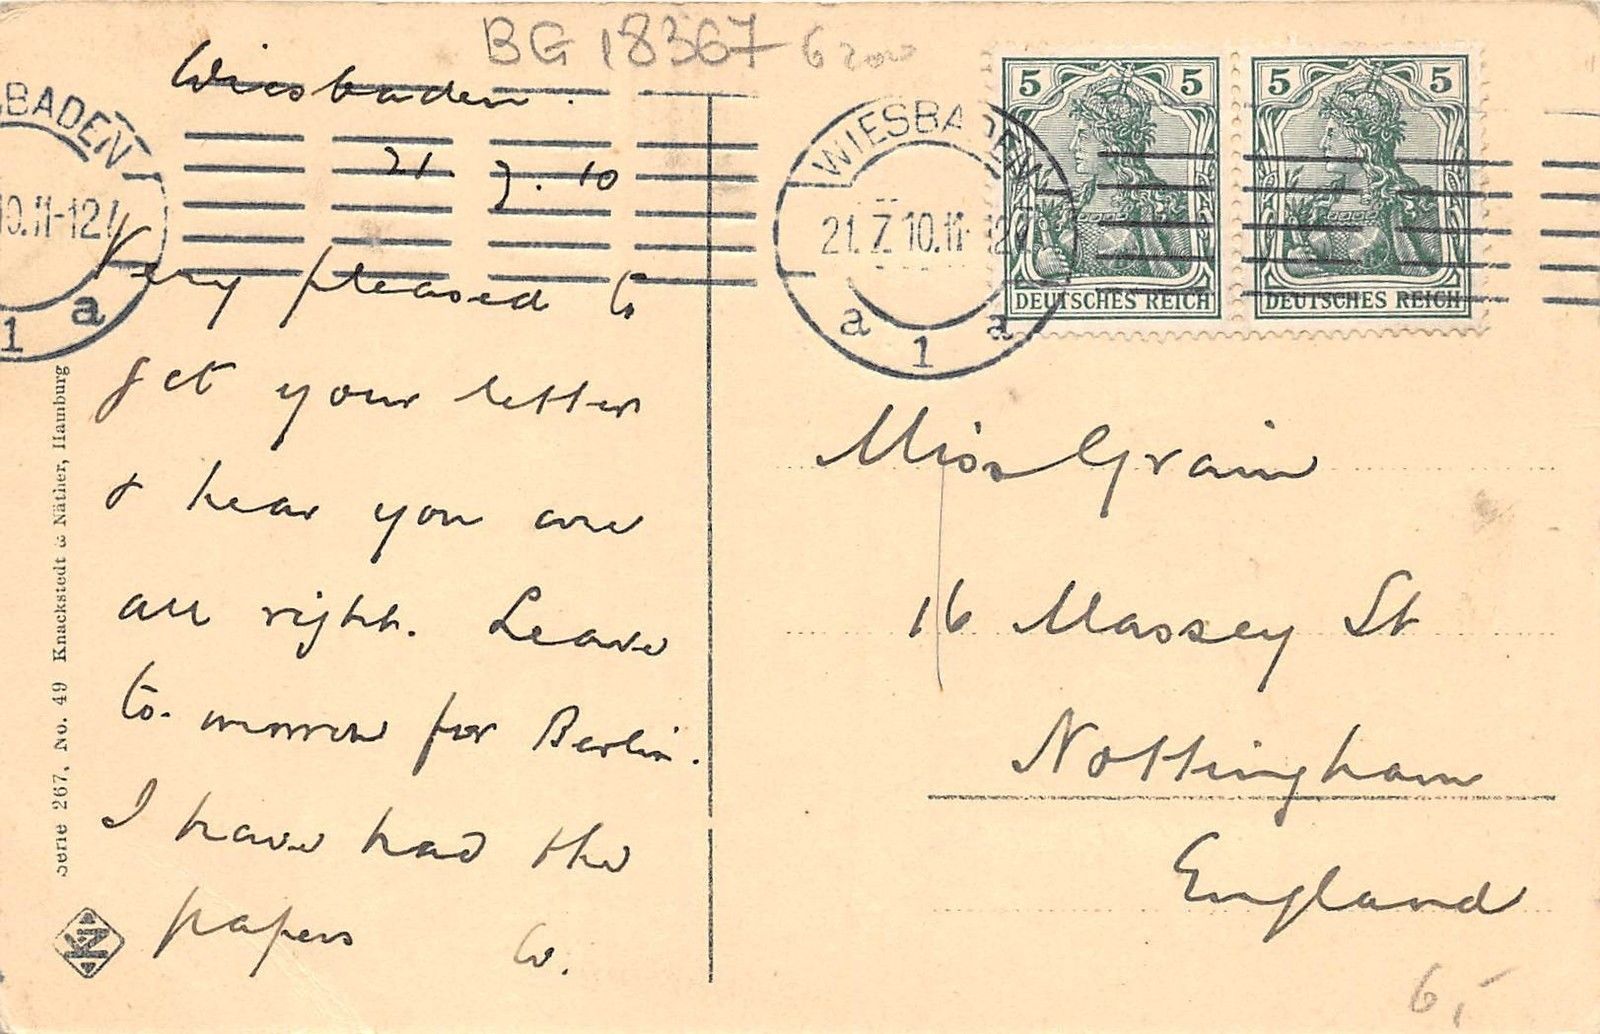 BG 18367
Wiesbaden.
21. 7. 10
Very pleased to
get your letter
& hear you are
all right. Leave
to-morrow for Berlin.
I have had the
papers W.
BADEN
10.11-12
1 a
WIESBADEN
21.7.10.11-12
a 1 a
5 5
DEUTSCHES REICH
5 5
DEUTSCHES REICH
Miss Grain
16 Massey St
Nottingham
England
6,-
Serie 267, No. 49 Knackstedt & Näther, Hamburg
KN